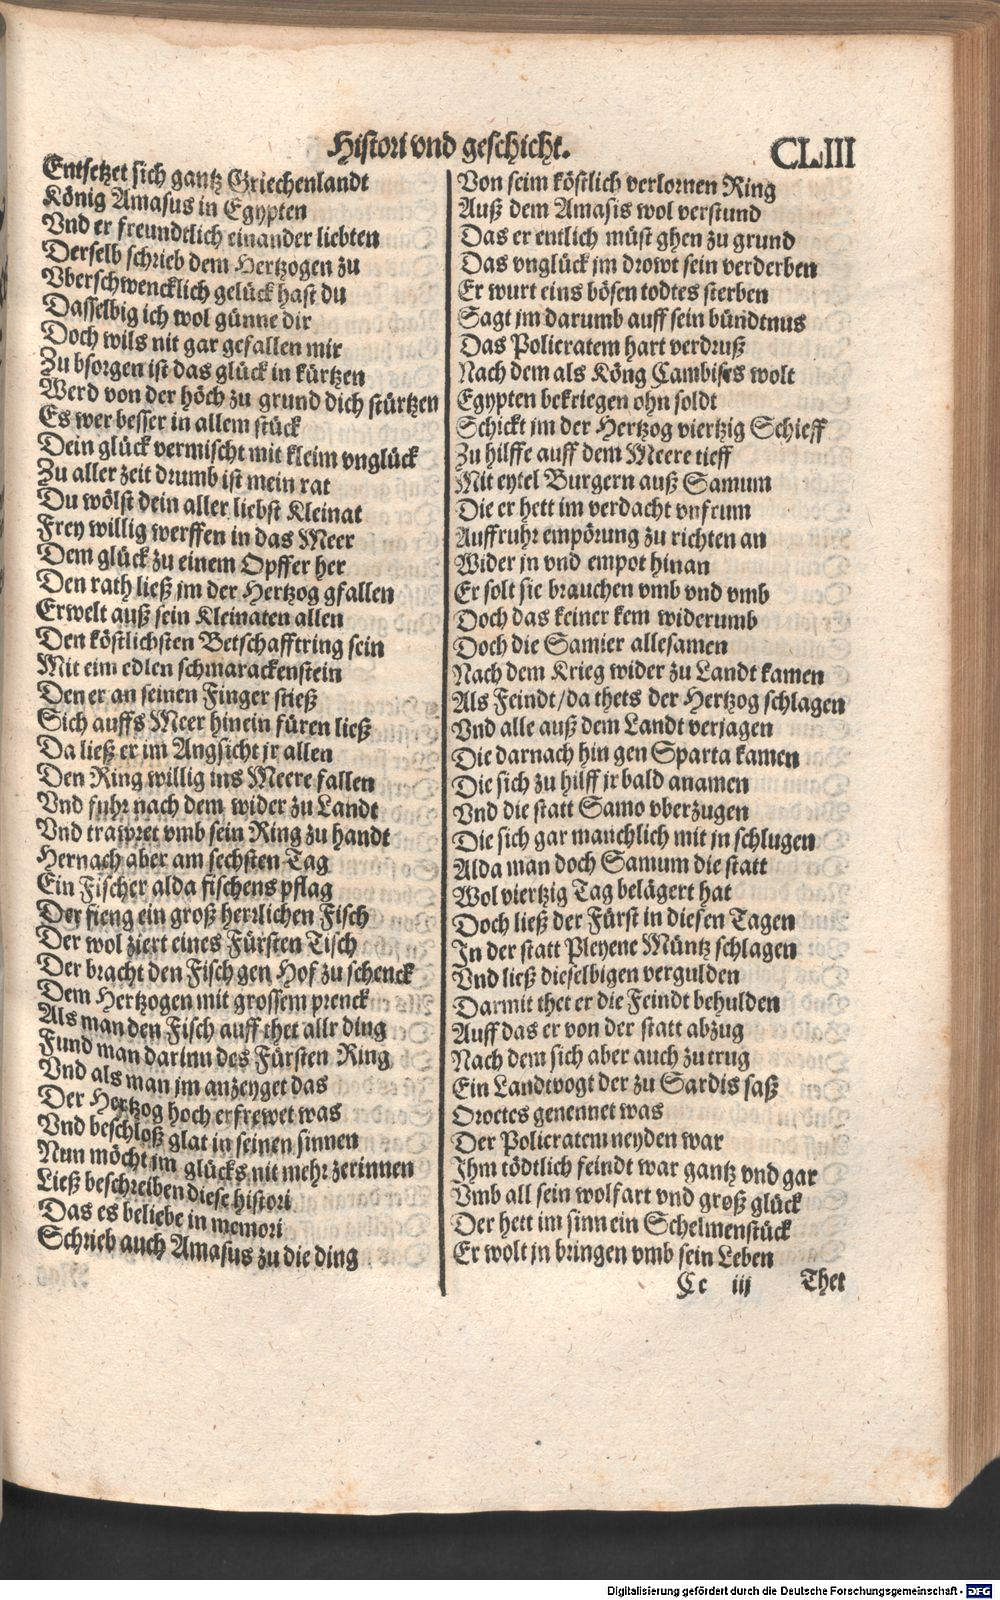 Histori vnd geschicht.
CLIII
Entsetzet sich gantz Griechenlandt
König Amasus in Egypten
Vnd er freundtlich einander liebten
Derselb schrieb dem Hertzogen zu
Vberschwencklich gelück hast du
Dasselbig ich wol günne dir
Doch wils nit gar gefallen mir
Zu bsorgen ist das glück in kürtzen
Werd von der höch zu grund dich stürtzen
Es wer besser in allem stück
Dein glück vermischt mit kleim vnglück
Zu aller zeit drumb ist mein rat
Du wölst dein aller liebst Kleinat
Frey willig werffen in das Meer
Dem glück zu einem Opffer her
Den rath ließ jm der Hertzog gfallen
Erwelt auß sein Kleinaten allen
Den köstlichsten Betschafftring sein
Mit eim edlen schmarackenstein
Den er an seinen Finger stieß
Sich auffs Meer hinein füren ließ
Da ließ er im Angsicht jr allen
Den Ring willig ins Meere fallen
Vnd fuhr nach dem wider zu Landt
Vnd trawret vmb sein Ring zu handt
Hernach aber am sechsten Tag
Ein Fischer alda fischens pflag
Der fieng ein groß herrlichen Fisch
Der wol ziert eines Fürsten Tisch
Der bracht den Fisch gen Hof zu schenck
Dem Hertzogen mit grossem prenck
Als man den Fisch auff thet allr ding
Fund man darinn des Fürsten Ring
Vnd als man jm anzeyget das
Der Hertzog hoch erfrewet was
Vnd beschloß glat in seinen sinnen
Nun möcht jm glücks nit mehr zerinnen
Ließ beschreiben diese histori
Das es beliebe in memori
Schrieb auch Amasus zu die ding
Von seim köstlich verlornen Ring
Auß dem Amasis wol verstund
Das er entlich müst ghen zu grund
Das vnglück jm drowt sein verderben
Er wurt eins bösen todtes sterben
Sagt jm darumb auff sein bündtnus
Das Policratem hart verdruß
Nach dem als Köng Cambises wolt
Egypten bekriegen ohn soldt
Schickt jm der Hertzog viertzig Schieff
Zu hilffe auff dem Meere tieff
Mit eytel Burgern auß Samum
Die er hett im verdacht vnfrum
Auffruhr empörung zu richten an
Wider jn vnd empot hinan
Er solt sie brauchen vmb vnd vmb
Doch das keiner kem widerumb
Doch die Samier allesamen
Nach dem Krieg wider zu Landt kamen
Als Feindt/da thets der Hertzog schlagen
Vnd alle auß dem Landt verjagen
Die darnach hin gen Sparta kamen
Die sich zu hilff jr bald anamen
Vnd die statt Samo vberzugen
Die sich gar manchlich mit jn schlugen
Alda man doch Samum die statt
Wol viertzig Tag belägert hat
Doch ließ der Fürst in diesen Tagen
In der statt Pleyene Müntz schlagen
Vnd ließ dieselbigen vergulden
Darmit thet er die Feindt behulden
Auff das er von der statt abzug
Nach dem sich aber auch zu trug
Ein Landtvogt der zu Sardis saß
Oroetes genennet was
Der Policratem neyden war
Ihm tödtlich feindt war gantz vnd gar
Vmb all sein wolfart vnd groß glück
Der hett im sinn ein Schelmenstück
Er wolt jn bringen vmb sein Leben
Cc iij Thet
Digitalisierung gefördert durch die Deutsche Forschungsgemeinschaft - DFG